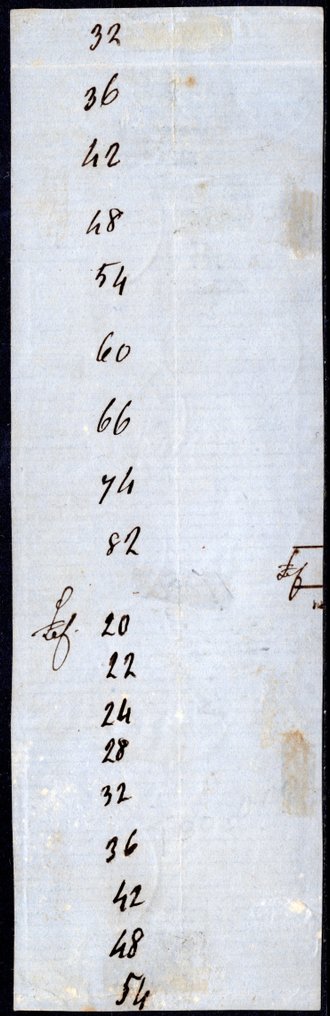 32
36
42
48
54
60
66
74
82
20
22
24
28
32
36
42
48
54